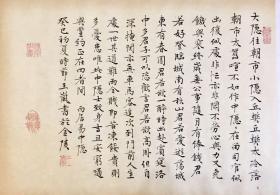 大隱住朝市小隱入丘樊丘樊太冷落
朝市太囂喧不如作中隱隱在留司官似
出復似處非忙亦非閑不勞心與力又免
饑與寒終歲無公事隨月有俸錢君
若好登臨城南有秋山君若愛遊蕩城
東有春園君若欲一醉時出赴賓筵洛
中多君子可以恣歡言君若欲高卧但自
深掩關亦無車馬客造次到門前人生
處一世其道難兩全賤即苦凍餒貴則
多憂患唯此中隱士致身吉且安窮通
與豐約正在四者間 居易中隱
癸巳初夏時節王書於金陵